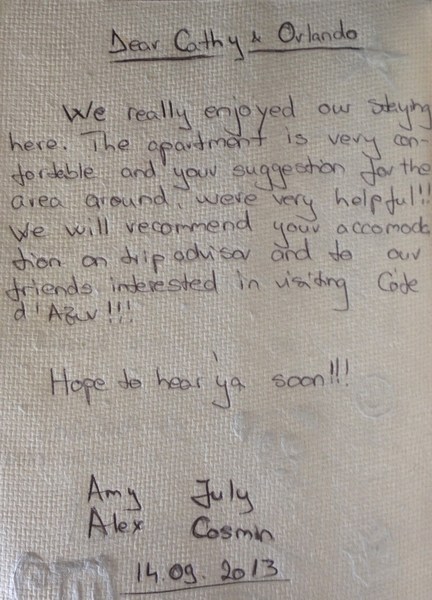 Dear Cathy & Orlando
We really enjoyed our staying
here. The apartment is very con-
fortable and your suggestion for the
area around, were very helpful!!
We will recommend your accomoda
tion on trip advisor and to our
friends interested in visiting Côte
d'Azur!!!
Hope to hear ya soon!!!
Amy July
Alex Cosmin
14.09.2013